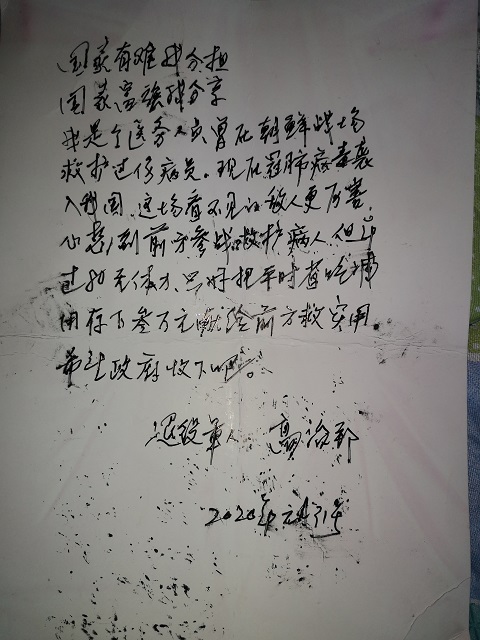 国家有难我分担
国家富强我分享
我是个医务人员曾在朝鲜战场
救护过伤病员。现在冠肺病毒袭
入我国，这场看不见的敌人更厉害，
心想到前方参战救护病人，但年
过80无体力，只好把平时省吃
用存下叁万元献给前方救灾用
希望政府收下吧。
退役军人 高治
2020年元月31号